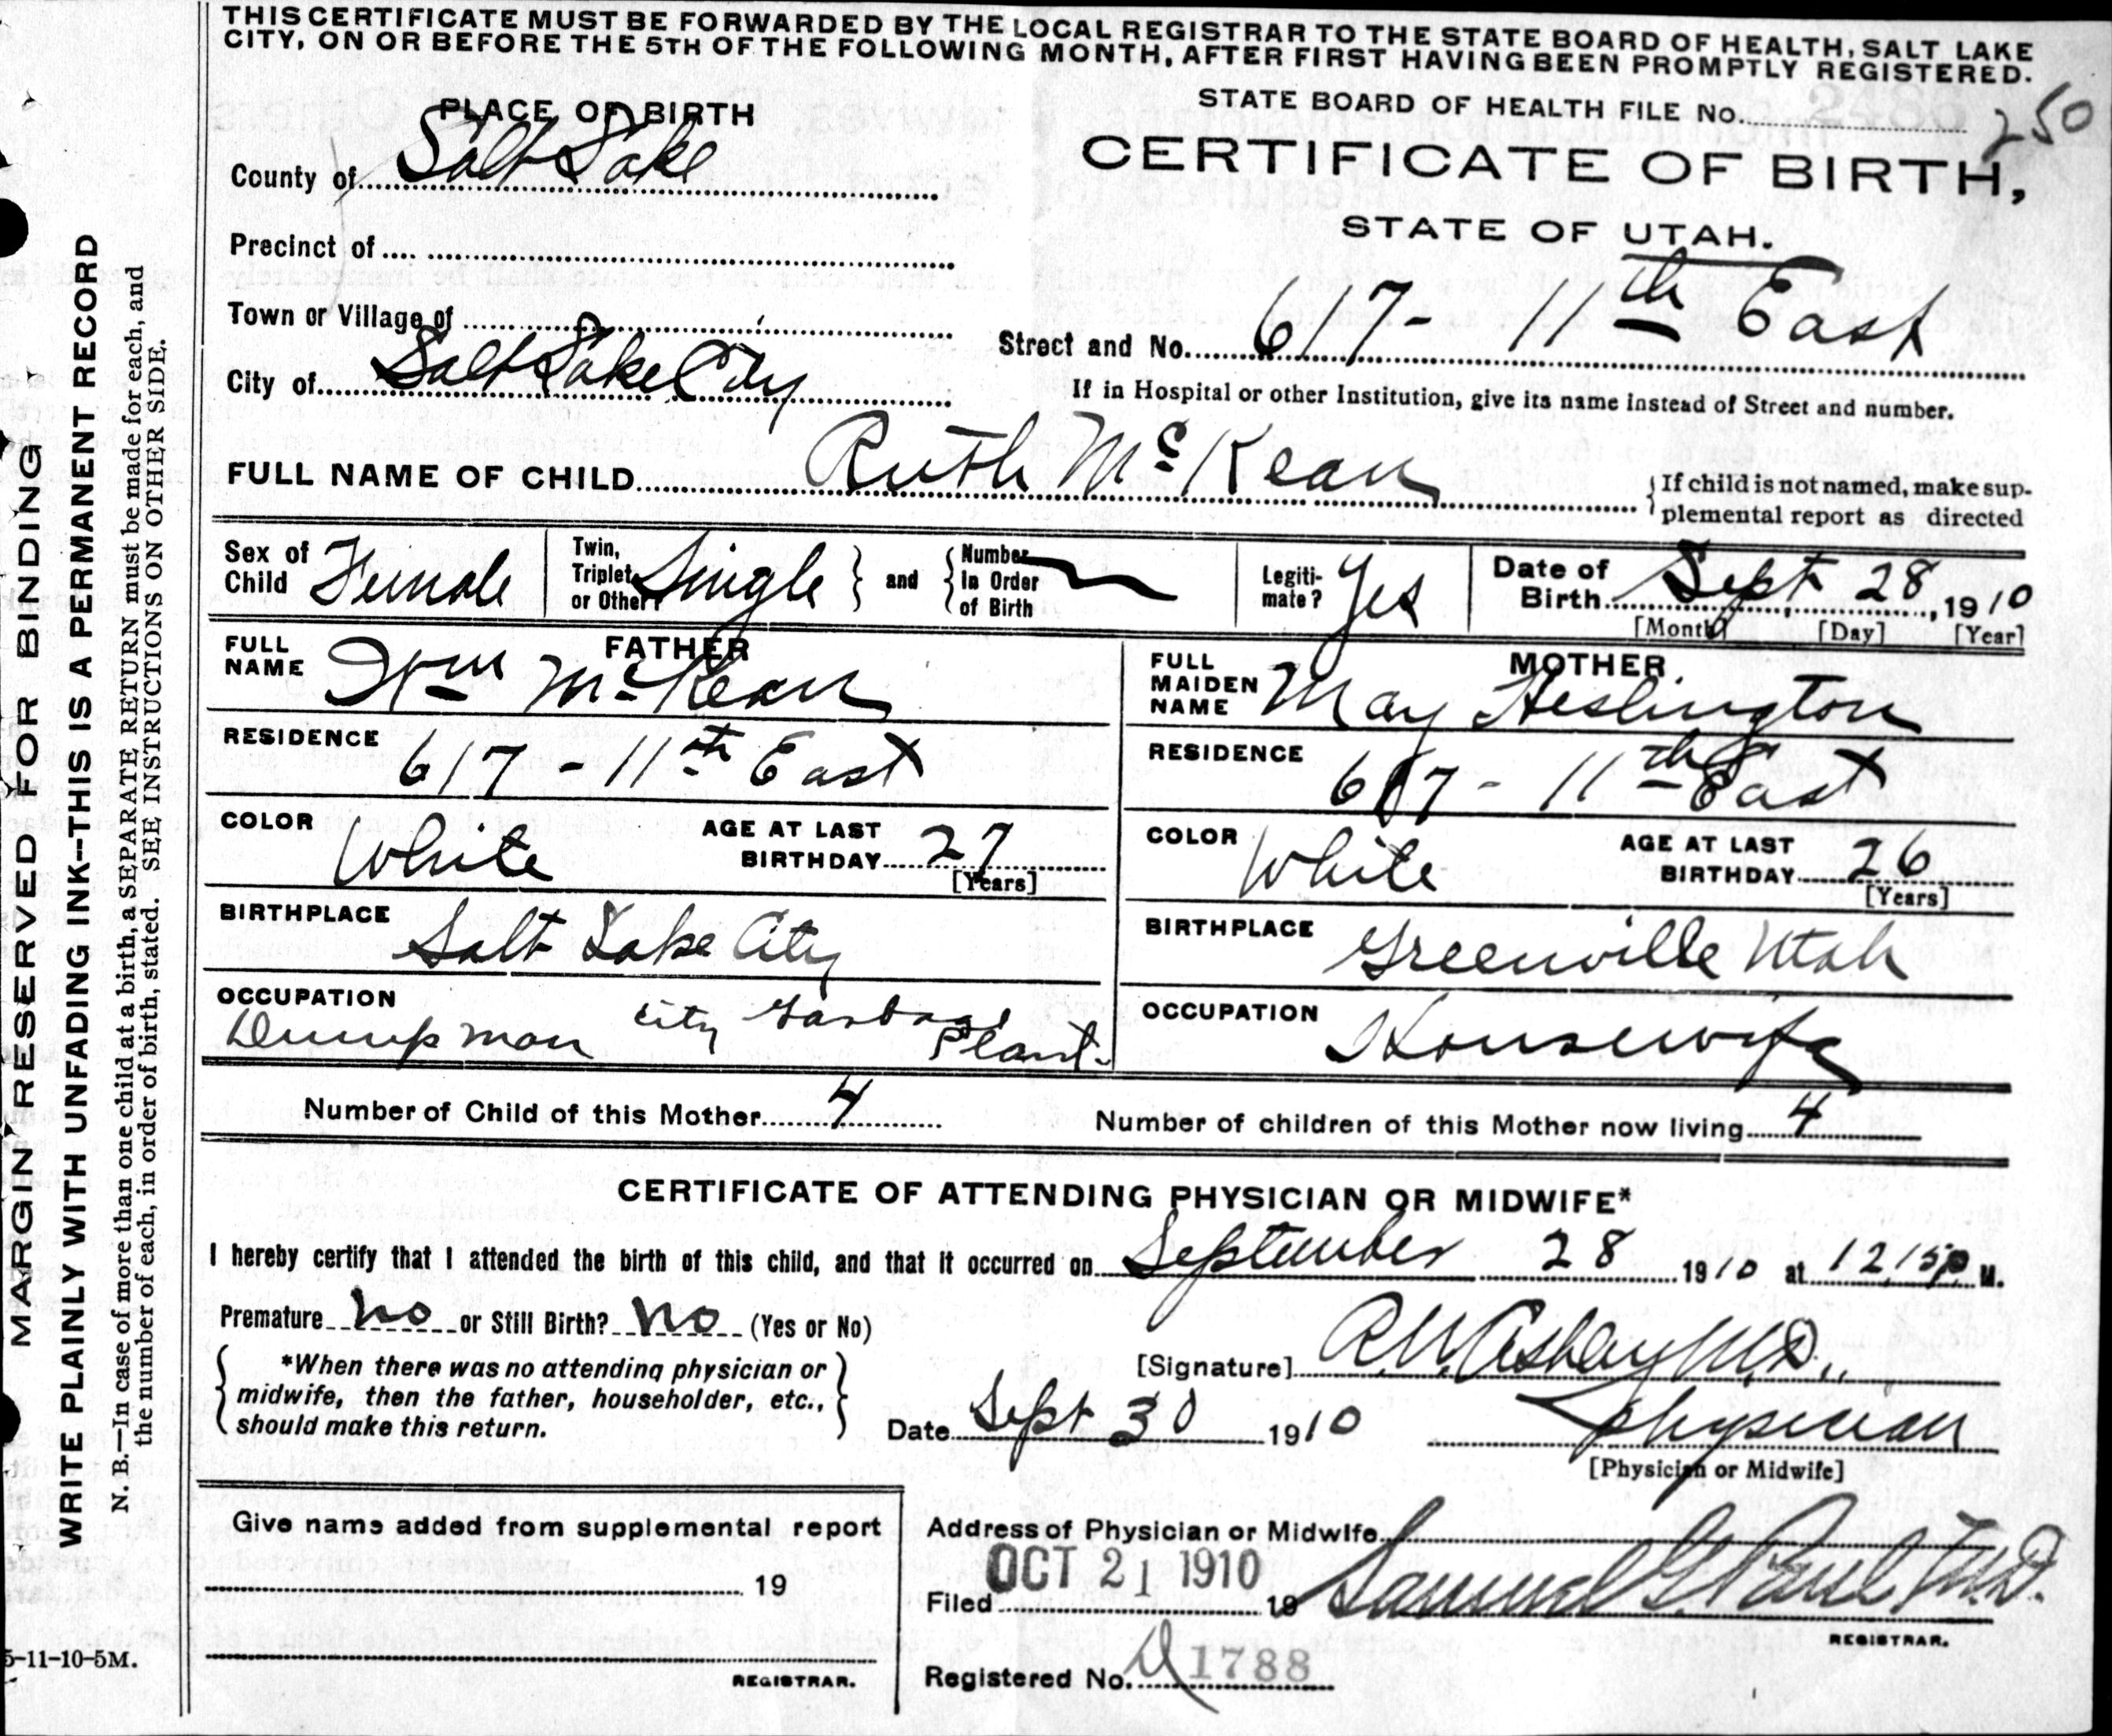 THIS CERTIFICATE MUST BE FORWARDED BY THE LOCAL REGISTRAR TO THE STATE BOARD OF HEALTH, SALT LAKE
CITY, ON OR BEFORE THE 5TH OF THE FOLLOWING MONTH, AFTER FIRST HAVING BEEN PROMPTLY REGISTERED.
PLACE OF BIRTH
STATE BOARD OF HEALTH FILE No. 250
County of Salt Lake
CERTIFICATE OF BIRTH,
STATE OF UTAH.
Precinct of
Town or Village of
Street and No. 617 - 11th East
City of Salt Lake City
If in Hospital or other Institution, give its name instead of Street and number.
FULL NAME OF CHILD Ruth McKean
If child is not named, make sup-
plemental report as directed
Sex of Child Female
Twin, Triplet or Other? Single and Number in Order of Birth
Legiti-mate? Yes
Date of Birth Sept 28, 1910
[Month] [Day] [Year]
FATHER
FULL NAME Wm McKean
RESIDENCE 617 - 11th East
COLOR White AGE AT LAST BIRTHDAY 27
[Years]
BIRTHPLACE Salt Lake City
OCCUPATION Dump man City Garbage Plant
MOTHER
FULL MAIDEN NAME May Heslington
RESIDENCE 617 - 11th East
COLOR White AGE AT LAST BIRTHDAY 26
[Years]
BIRTHPLACE Greenville Utah
OCCUPATION Housewife
Number of Child of this Mother 4 Number of children of this Mother now living 4
CERTIFICATE OF ATTENDING PHYSICIAN OR MIDWIFE*
I hereby certify that I attended the birth of this child, and that it occurred on September 28 1910 at 12,15 P M.
Premature no or Still Birth? no (Yes or No)
*When there was no attending physician or
midwife, then the father, householder, etc.,
should make this return.
[Signature] Ashley M.D.
Date Sept 30 1910 Physician
[Physician or Midwife]
Give name added from supplemental report
19
REGISTRAR.
Address of Physician or Midwife
OCT 21 1910
Filed 19 Samuel G. Paul M.D.
REGISTRAR.
Registered No. 1788
MARGIN RESERVED FOR BINDING
WRITE PLAINLY WITH UNFADING INK--THIS IS A PERMANENT RECORD
N. B.—In case of more than one child at a birth, a SEPARATE RETURN must be made for each, and
the number of each, in order of birth, stated. SEE INSTRUCTIONS ON OTHER SIDE.
5-11-10-5M.